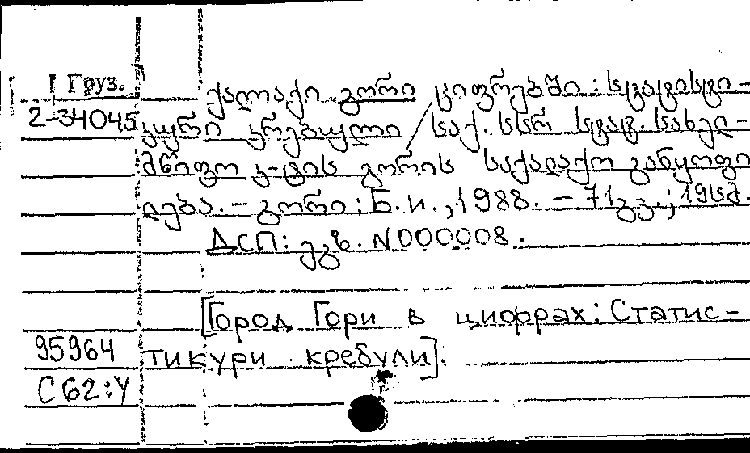 Груз.
ქალაქი გორი ციფრებში : სტატისტი-
2-34045
კური კრებული / საქ. სსრ სტატ. სახელ-
მწიფო კ-ტის გორის საქალაქო განყოფი
ლება. - გორი : Б.и., 1988. - 71გვ.; 19სმ.
ДСП: ეგზ. N000008.
[Город Гори в цифрах: Статис-
95964
тикури кребули].
С62:У